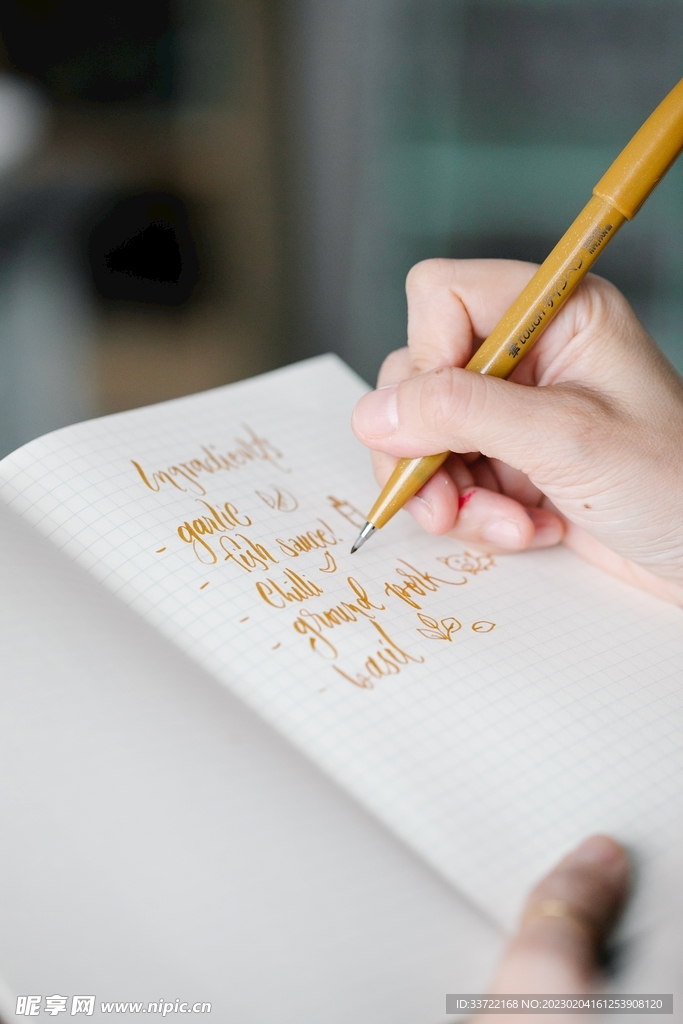 Ingredients
- garlic
- fish sauce!
- Chilli
- ground pork
- basil
touch
昵享网 www.nipic.cn
ID:33722168 NO:20230204161253908120